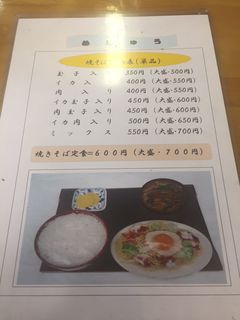 めしゅう
焼そば 表(単品)
玉子入り 350円(大盛・500円)
イカ入り 400円(大盛・550円)
肉入り 400円(大盛・550円)
イカ玉子入り 450円(大盛・600円)
肉玉子入り 450円(大盛・600円)
イカ肉入り 500円(大盛・650円)
ミックス 550円(大盛・700円)
焼きそば定食=600円(大盛・700円)